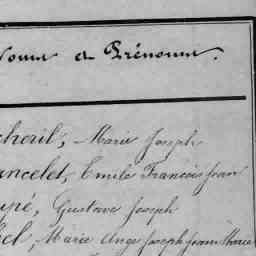 Noms et Prénoms.
cheril, Marie Joseph
ancelet, Emile Francois Jean
upé, Gustave Joseph
hel, Marie Ange Joseph Jean Marie